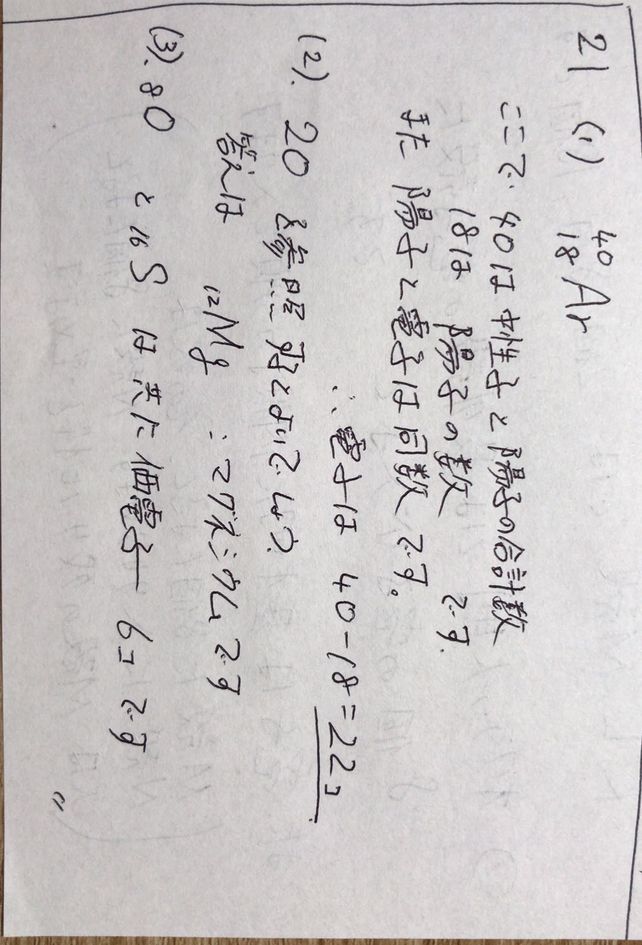 21 (1) ⁴⁰₁₈Ar
ここで 40は 中性子と陽子の合計数
18は 陽子の数 です.
また 陽子と電子は同数です。
∴ 電子は 40-18=22コ.
(2). 20を参照するとよいでしょう.
答えは ₁₂Mg : マグネシウムです
(3). ₈O と ₁₆S は共に価電子 6コです
〃